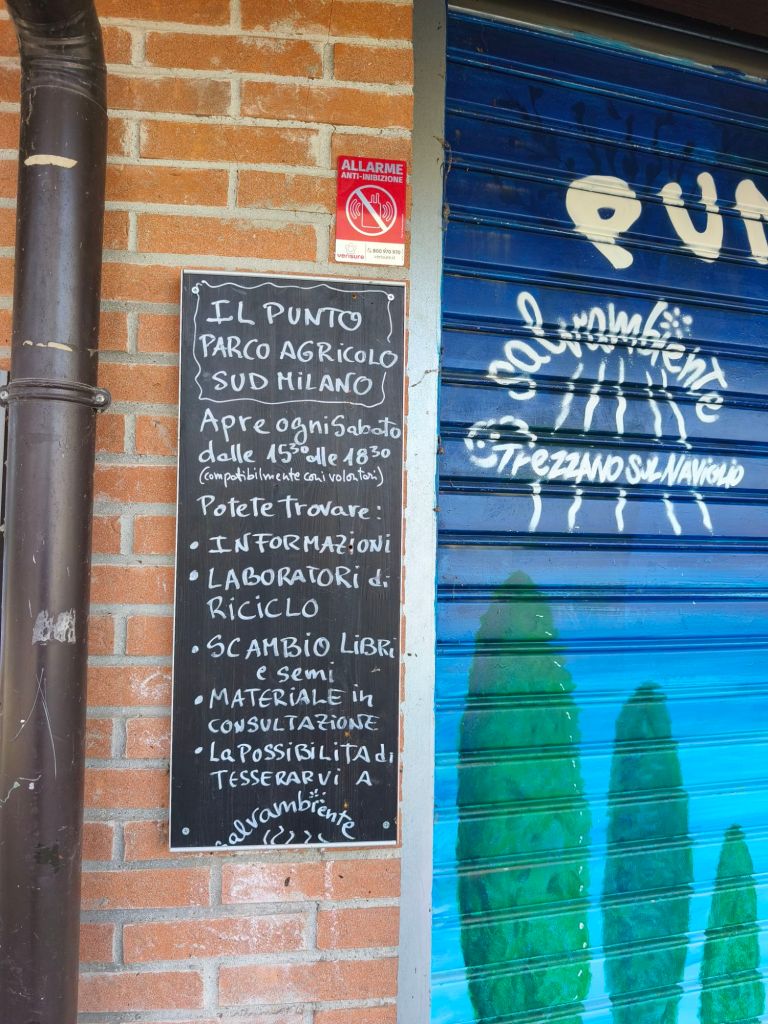 ALLARME
ANTI-INIBIZIONE
verisure
800 970 970
IL PUNTO
PARCO AGRICOLO
SUD MILANO
Apre ogni Sabato
dalle 15³⁰ alle 18³⁰
(compatibilmente con i volontari)
Potete Trovare:
• INFORMAZIONI
• LABORATORI di
RICICLO
• SCAMBIO LIBRI
e semi
• MATERIALE in
CONSULTAZIONE
• La POSSIBILITA di
TESSERARVI A
salvambiente
PUN
salvambiente
TREZZANO SUL NAVIGLIO